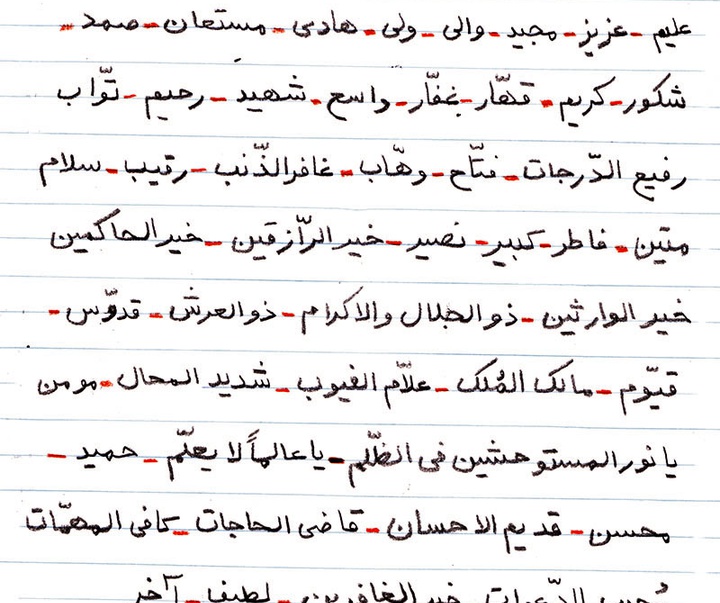 علیم - عزیز - مجید - والی - ولی - هادی - مستعان - صمد -
شکور - کریم - قهّار - غفّار - واسع - شهید - رحیم - توّاب
رفیع الدّرجات - فتّاح - وهّاب - غافرالذّنب - رقیب - سلام
متین - فاطر - کبیر - نصیر - خیرالرّازقین - خیرالحاکمین
خیرالوارثین - ذوالجلال والاکرام - ذوالعرش - قدّوس -
قیّوم - مالک المُلک - علاّم الغیوب - شدید المحال - مومن
یا نورالمستوحشین فی الظّلم - یا عالماً لا یعلّم - حمید -
محسن - قدیم الاحسان - قاضی الحاجات - کافی المهمّات
مُجیب الدّعوات - خیرالغافرین - لطیف - آخر